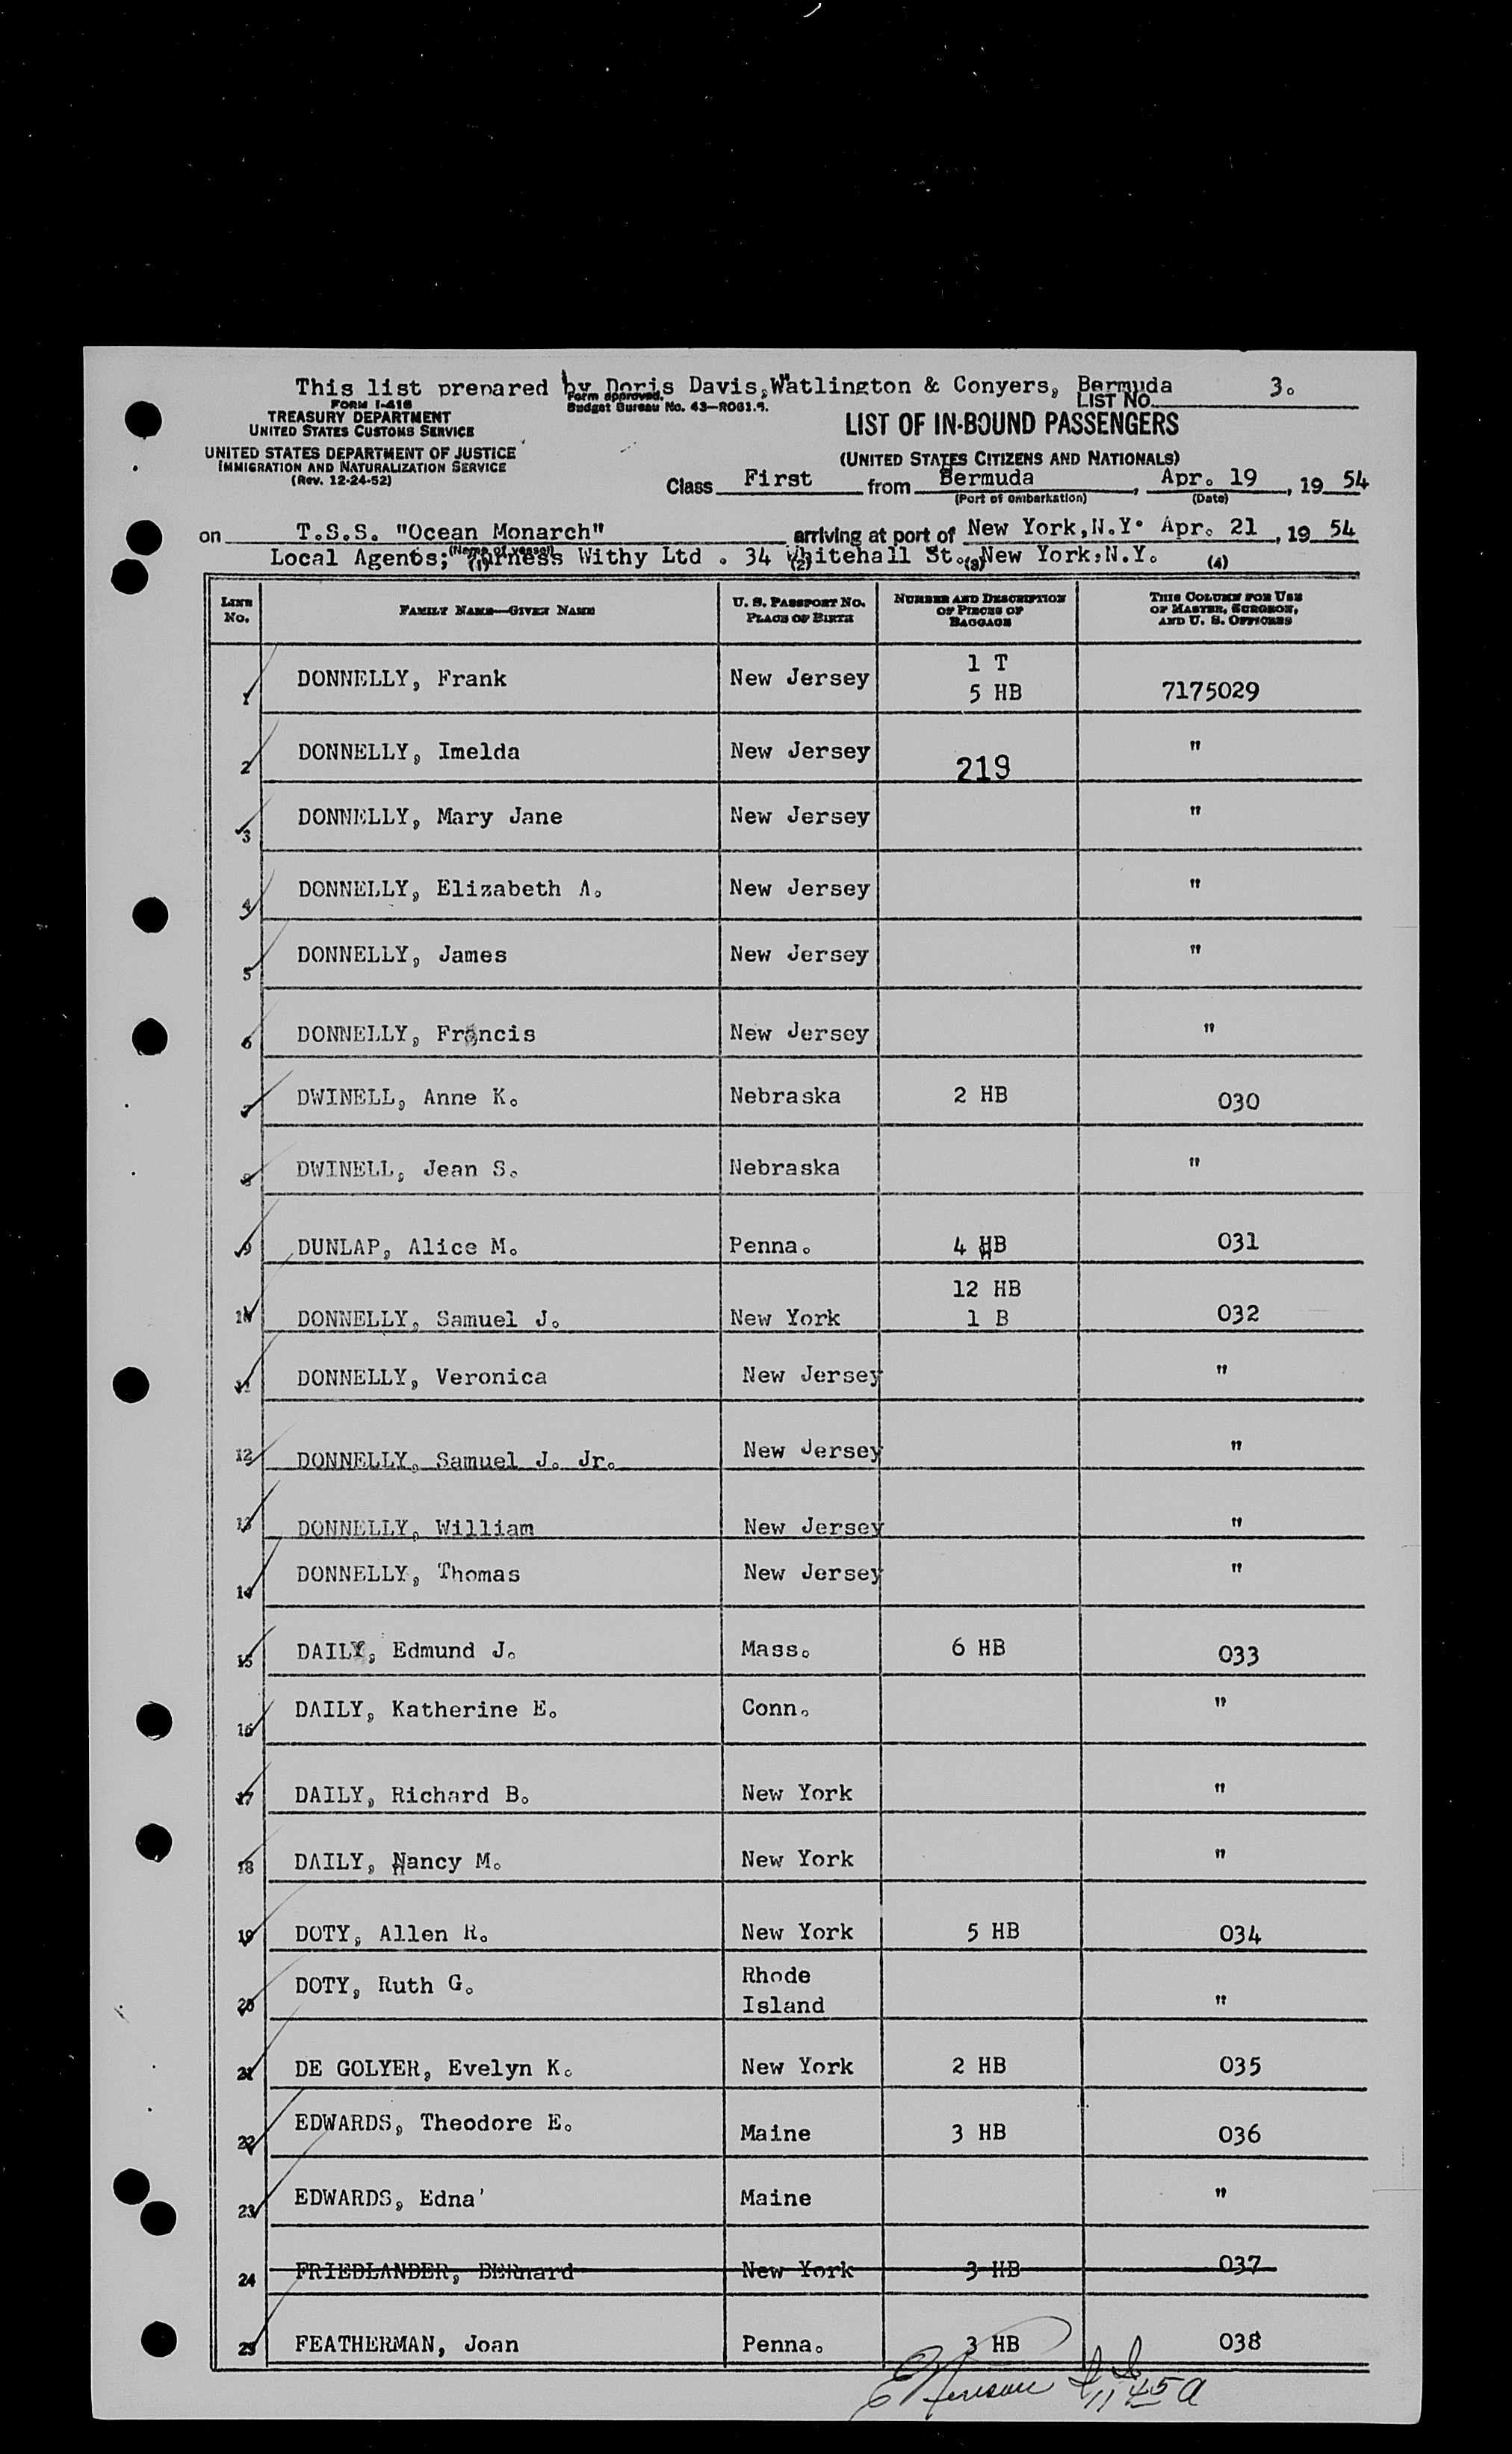 This list prepared by Doris Davis, Watlington & Conyers, Bermuda
LIST NO. 3.
FORM I-418
TREASURY DEPARTMENT
UNITED STATES CUSTOMS SERVICE
Form approved.
Budget Bureau No. 43-R061.
UNITED STATES DEPARTMENT OF JUSTICE
IMMIGRATION AND NATURALIZATION SERVICE
(Rev. 12-24-52)
LIST OF IN-BOUND PASSENGERS
(UNITED STATES CITIZENS AND NATIONALS)
Class First from Bermuda, Apr. 19, 19 54
(Port of embarkation) (Date)
on T.S.S. "Ocean Monarch" arriving at port of New York, N.Y. Apr. 21, 19 54
(Name of vessel)
Local Agents; Furness Withy Ltd . 34 Whitehall St. New York, N.Y.
(1) (2) (3) (4)
LINE NO. FAMILY NAME—GIVEN NAME U. S. PASSPORT NO. PLACE OF BIRTH NUMBER AND DESCRIPTION OF PIECES OF BAGGAGE THIS COLUMN FOR USE OF MASTER, SURGEON, AND U. S. OFFICERS
1 DONNELLY, Frank New Jersey 1 T 5 HB 7175029
2 DONNELLY, Imelda New Jersey 219 "
3 DONNELLY, Mary Jane New Jersey "
4 DONNELLY, Elizabeth A. New Jersey "
5 DONNELLY, James New Jersey "
6 DONNELLY, Francis New Jersey "
7 DWINELL, Anne K. Nebraska 2 HB 030
8 DWINELL, Jean S. Nebraska "
9 DUNLAP, Alice M. Penna. 4 HB 031
10 DONNELLY, Samuel J. New York 12 HB 1 B 032
11 DONNELLY, Veronica New Jersey "
12 DONNELLY, Samuel J. Jr. New Jersey "
13 DONNELLY, William New Jersey "
14 DONNELLY, Thomas New Jersey "
15 DAILY, Edmund J. Mass. 6 HB 033
16 DAILY, Katherine E. Conn. "
17 DAILY, Richard B. New York "
18 DAILY, Nancy M. New York "
19 DOTY, Allen R. New York 5 HB 034
20 DOTY, Ruth G. Rhode Island "
21 DE GOLYER, Evelyn K. New York 2 HB 035
22 EDWARDS, Theodore E. Maine 3 HB 036
23 EDWARDS, Edna' Maine "
24 FRIEDLANDER, BERnard New York 3 HB 037
25 FEATHERMAN, Joan Penna. 3 HB 038
11 45 a